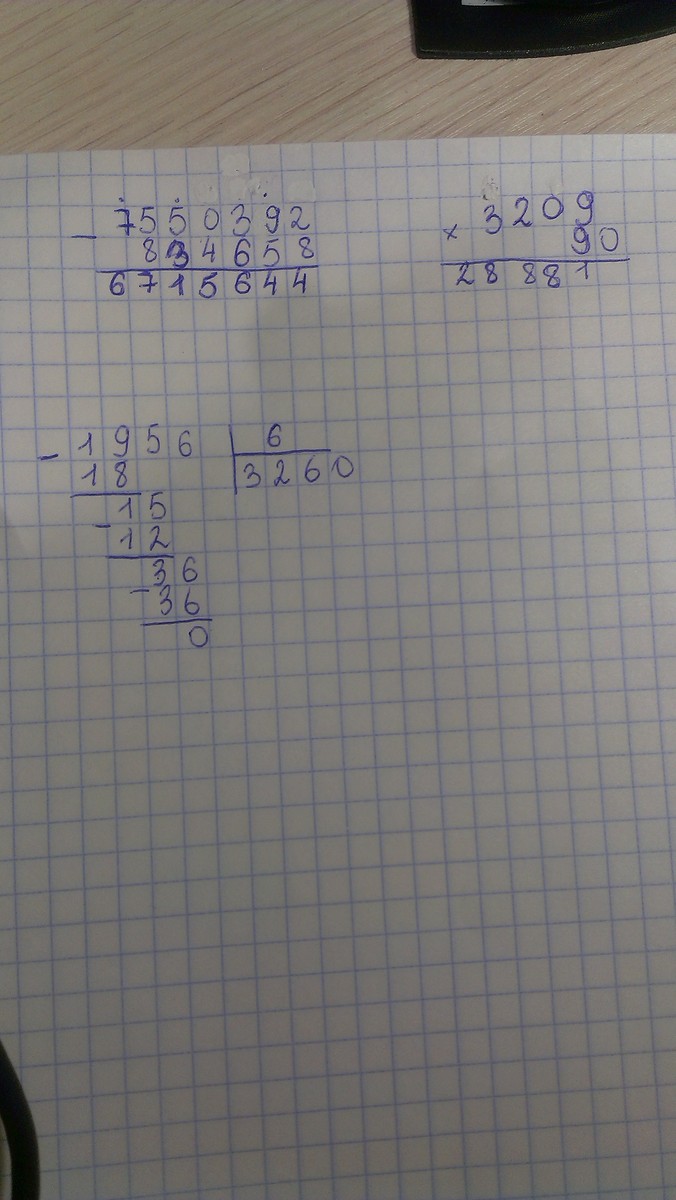 - 7550392
834658
6715644
× 3209
90
28881
- 1956 | 6
18 3260
- 15
12
- 36
36
0